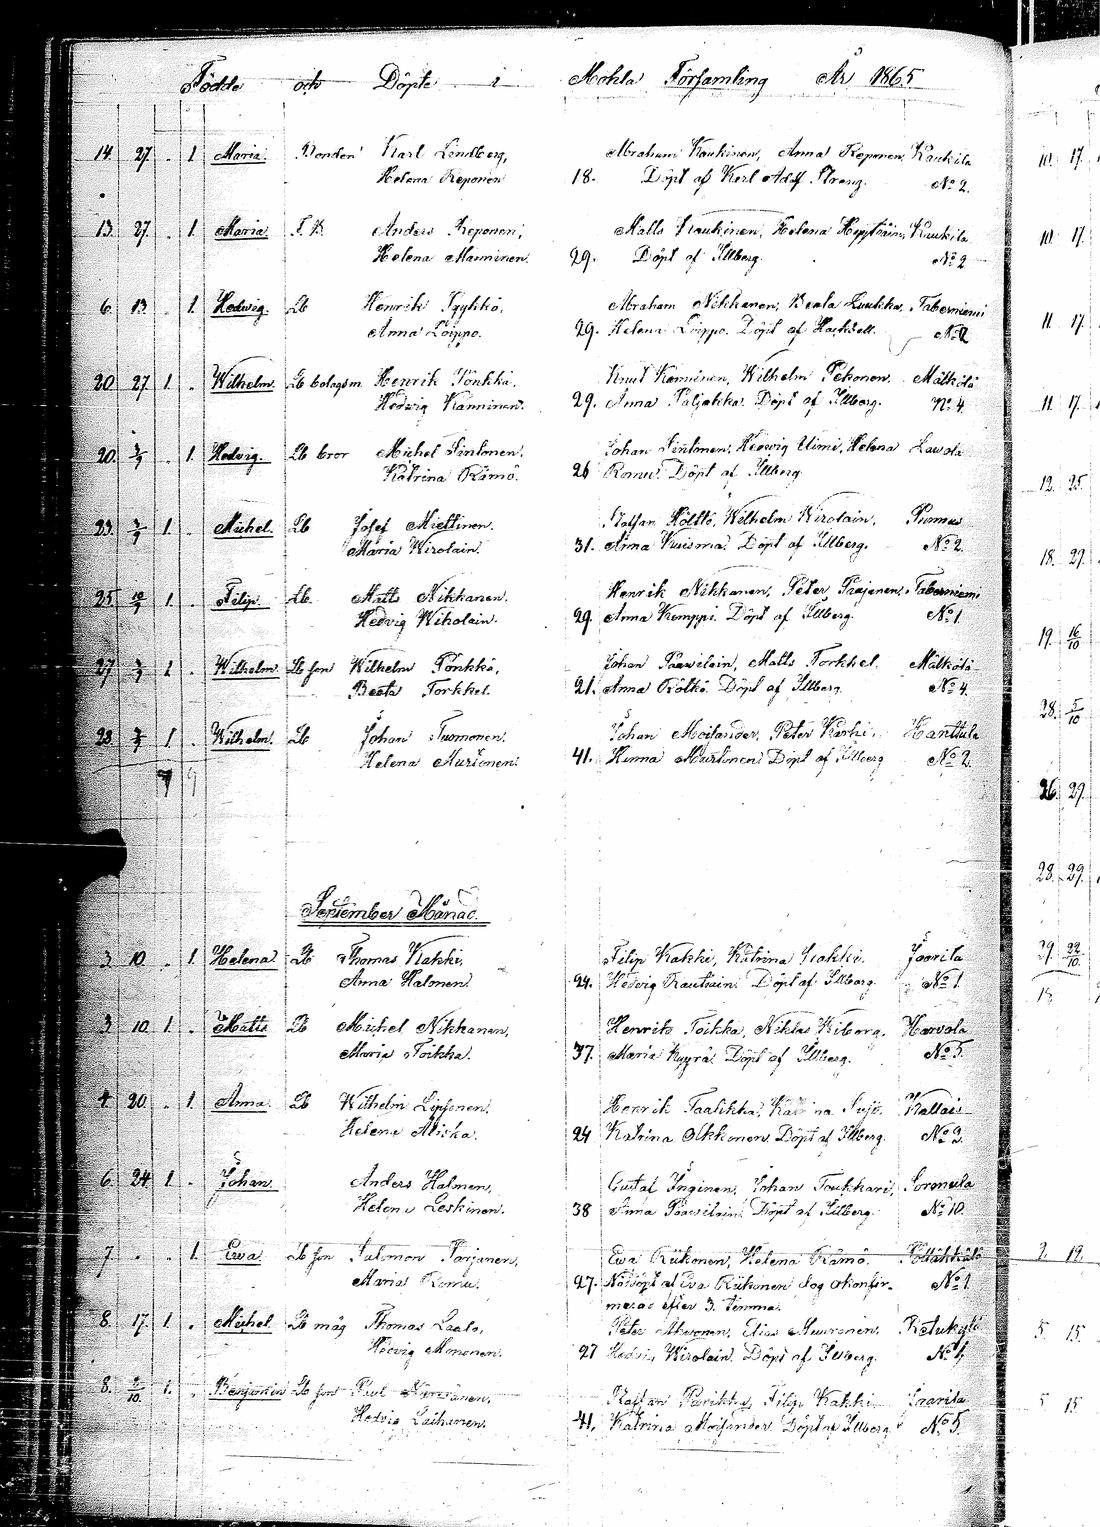 Födde och Döpte i Mohla Församling År 1865
14. 27. . 1. Maria. Bonden Karl Lindberg, Abraham Kaukinen, Anna Reponen, Kaukila
Helena Reponen 18. Döpt af Karl Adolf Strang. No 2.
13. 27. . 1. Maria. Anders Reponen, Matts Kaukinen, Helena Kaukila
Helena Manninen. 29. Döpt af Illberg. No 2
6. 13. . 1. Hedwig. Lb Henrik Pyykkö, Abraham Nikkanen, Beata Luukka, Taberniemi
Anna Loippo. 29. Helena Loippo. Döpt af No 2
20. 27. 1. . Wilhelm. Lb bolagsm Henrik Pönkkä. Knut Kanninen, Wilhelm Pekonen. Mälkölä
Hedwig Kanninen. 29. Anna Paljakka. Döpt af Illberg. No 4.
20. 3/9 . 1. Hedvig. Lb bror Michel Sintonen. Johan Sintonen, Hedwig Uimi, Helena
Katrina Rämö. 26 Romu. Döpt af Illberg
23. 3/9 1. . Michel. Lb Josef Miettinen. Staffan Höltto, Wilhelm Wirolain,
Maria Wirolain. 31. Anna Kuisma. Döpt af Illberg. No 2.
25. 10/9 1. . Filip. Lb. Matts Nikkanen. Henrik Nikkanen, Peter Paajanen. Taberniemi
Hedvig Wiholain. 29. Anna Kemppi. Döpt af Illberg. No 1.
27. 3/9 1. . Wilhelm. Lb son Wilhelm Pönkkö, Johan Paawilain, Matts Torkkel. Mälkölä
Beata Torkkel. 21. Anna Rölkö. Döpt af Illberg. No 4.
28. 3/9 1. . Wilhelm. Lb Johan Tuomonen. Johan Moilander, Peter Karhi. Kanttula
Helena Murtonen. 41. Murtonen. Döpt af Illberg No 2.
7 9
September Månad.
3. 10. . 1. Helena Lb Thomas Kakki, Filip Kakki, Katrina Kakki. Jaarila
Anna Halonen. 24. Hedvig Rautiain. Döpt af Illberg. No 1.
3 10. 1. . Matts Lb Michel Nikkanen, Henrik Toikka, Niklas Wiborg. Karvola
Maria Toikka. 37. Maria Kyyrä. Döpt af Illberg. No 5.
4. 20 . 1. Anna. Lb Wilhelm Liponen, Henrik Taalikka, Katrina Sujo.
Helena 24 Katrina Olkkonen. Döpt af Illberg. No 2.
6. 24 1. . Johan. Anders Halmen, Gustaf Inginen, Johan Toukkari,
Helena Leskinen. 38 Anna Paawilain. Döpt af Illberg. No 10.
7 . . 1. Ewa. Lb son Salomon Parjanen, Ewa Riikonen, Helena Rämö.
Maria Romu. 27. Nöddöpt af Eva Riikonen dog okonfir-
merad efter 3. timma. No 1
8. 17. 1. . Michel. Lb måg Thomas Laalo, Peter Ahvonen, Elias Muuronen.
Hedvig 27 Hedvig Wirolain. Döpt af Illberg. No 4.
8. 2/10. 1. . Benjamin Lb son Paul Staffan Parikka, Filip Kakki
Hedvig Laihanen. 41. Katrina Moilander. Döpt af Illberg. No 5.
10. 17.
10. 17.
11. 17.
11. 17.
12. 25.
18. 27.
19. 16/10
28. 5/10
26. 29.
28. 29.
29. 22/10.
2. 19.
5. 15.
5 15